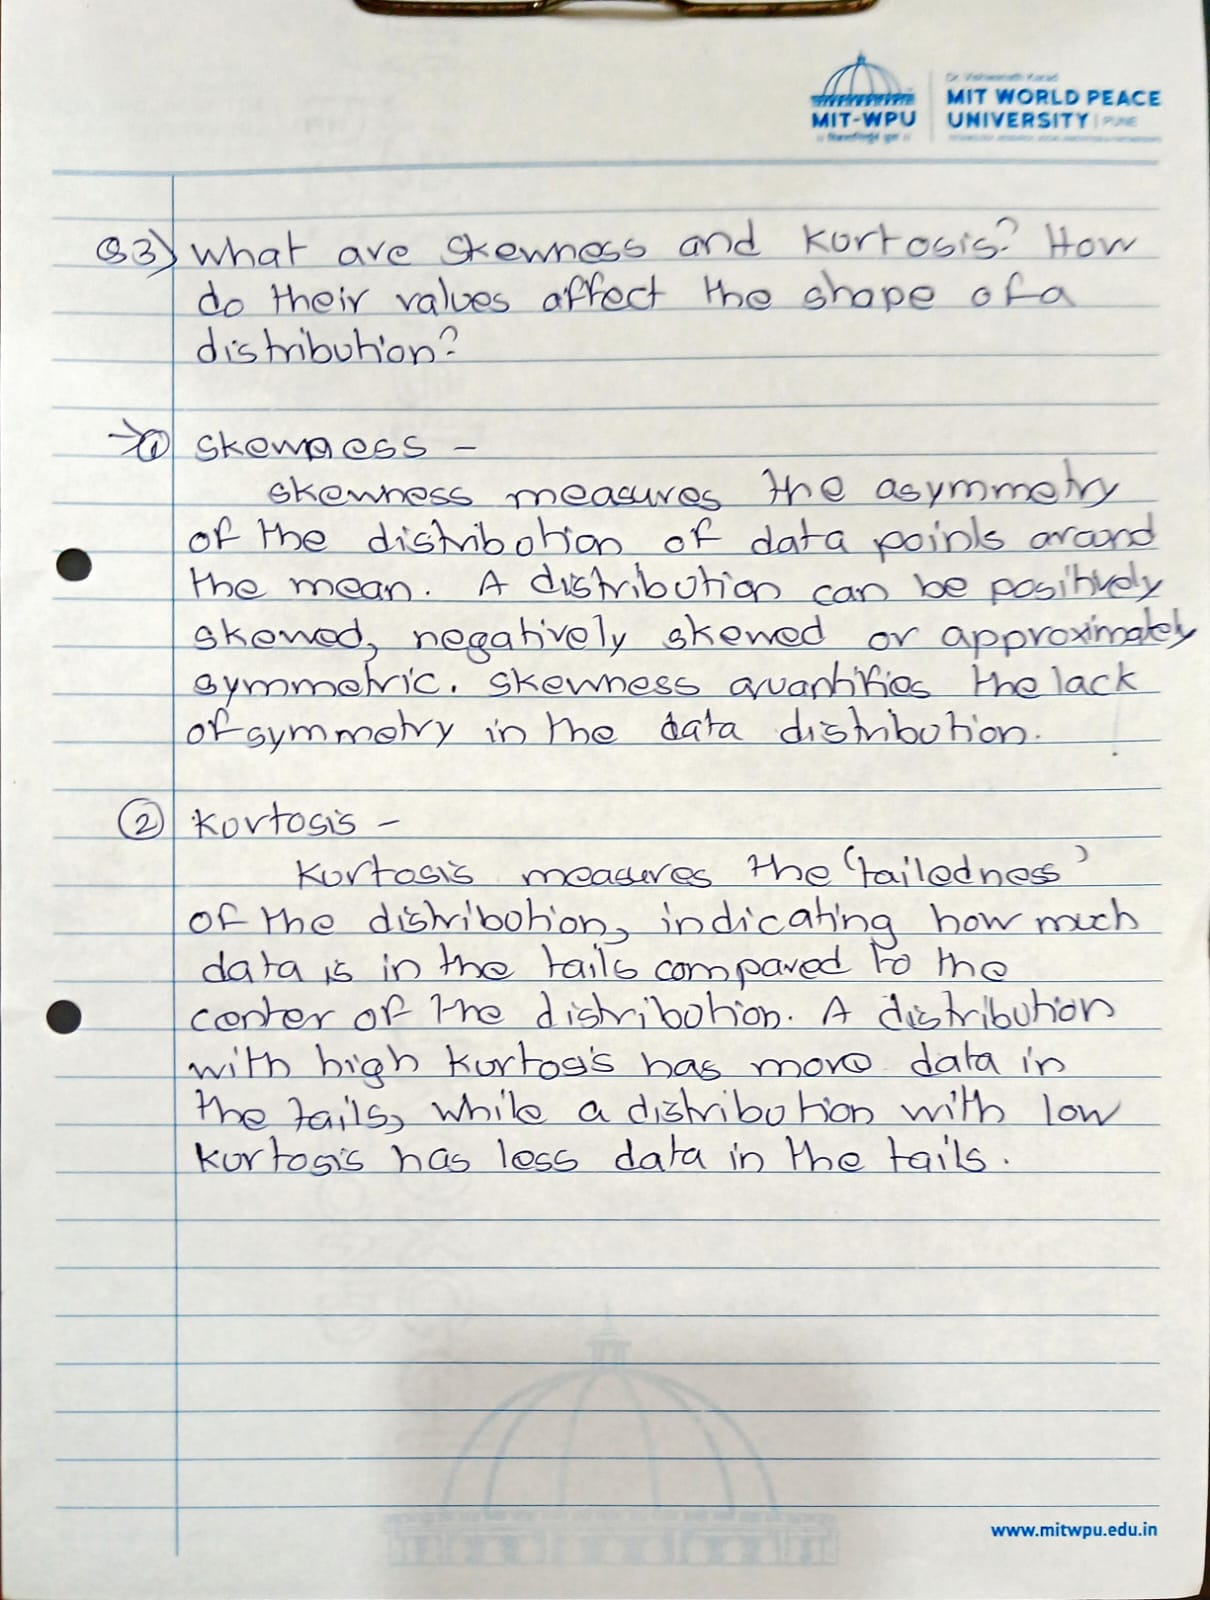 Dr. Vishwanath Karad
MIT WORLD PEACE
UNIVERSITY | PUNE
MIT-WPU
Q3) What are skewness and kurtosis? How
do their values affect the shape of a
distribution?
→① Skewness -
Skewness measures the asymmetry
of the distribution of data points around
the mean. A distribution can be positively
skewed, negatively skewed or approximately
symmetric. Skewness quantifies the lack
of symmetry in the data distribution.
② Kurtosis -
Kurtosis measures the 'tailedness'
of the distribution, indicating how much
data is in the tails compared to the
center of the distribution. A distribution
with high kurtosis has more data in
the tails, while a distribution with low
kurtosis has less data in the tails.
www.mitwpu.edu.in